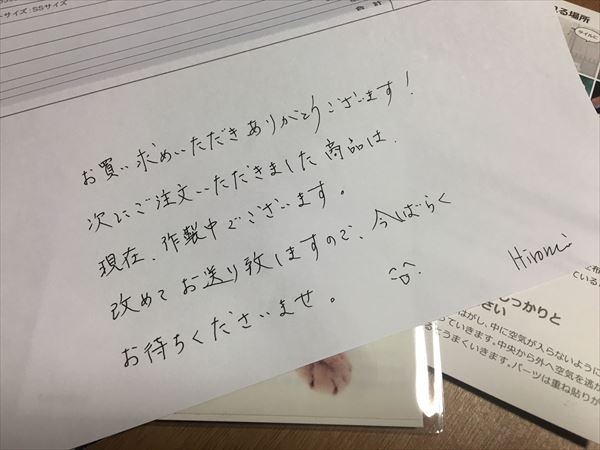 サイズ：SSサイズ
合 計
お買い求めいただきありがとうございます！
次にご注文いただきました商品は、
現在、作製中でございます。
改めてお送り致しますので、今しばらく
お待ちくださいませ。
Hiromi
る場所
タイルに
しっかりと
さい
はがし、中に空気が入らないように
っていきます。中央から外へ空気を逃が
るとうまくいきます。パーツは重ね貼りが